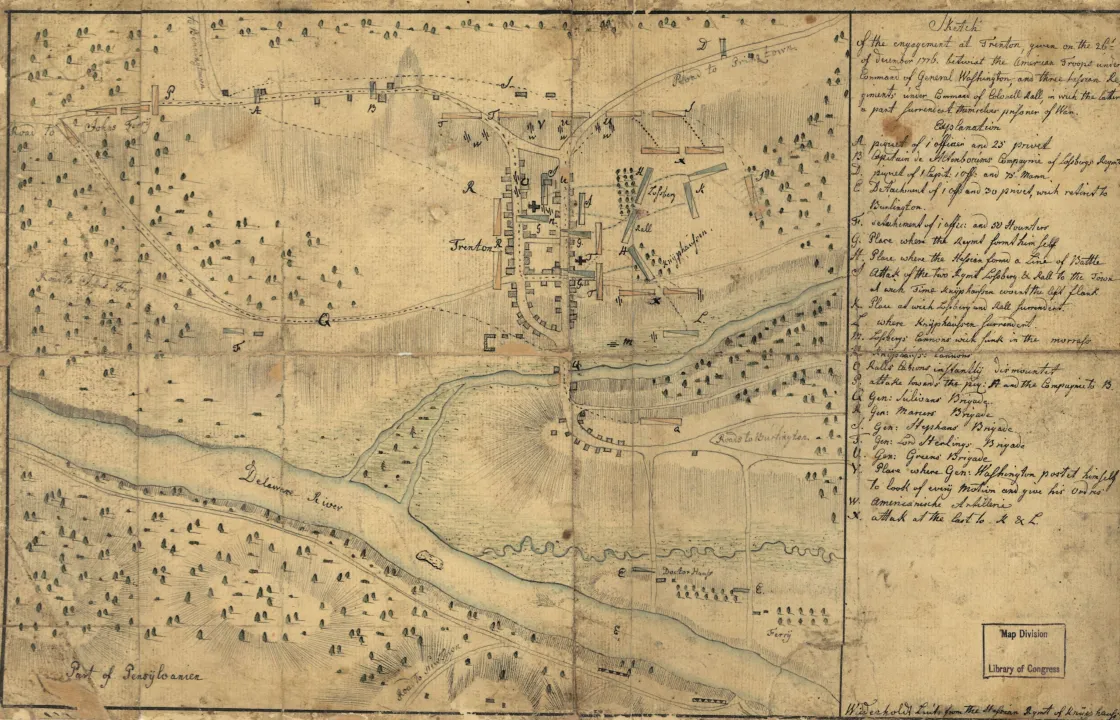 Sketch
of the engagement at Trenton, given on the 26th
of december 1776. betwixt the American Troops under
Command of General Washington, and three Hessian Re
giments under Command of Colonell Rall, in wich the latter
a part Surrendert themselves prisoner of War.
Explanation
A. piquet of 1 officier and 25 privet
B Capitain de Altenborums Compagnie of Losbergs Regim
D. piquet of 1 Capit: 1 offs. and 75. Mann.
E. Detachment of 1 off and 30 privet, wich retiret to
Burlington.
F. detachement of 1 offic: and 50
G. Place where the Regmt formt him self
H. Place where the Hessian format a Line of Battle
J. Attak of the two Regmt Losberg & Rall to the Town
at wich Time Knyphausen covert the left flank
K. Place at wich Losberg and Rall Surrendert.
L. where Knyphausen Surrendert.
M. Losbergs Cannons wich sunk in the morrass
N. Knyphauss: cannons
O Ralls cannons instantly dismountet
P. attake towards the piq: A and the Compagnie B
Q Gen: Sulivans Brigade
R. Gen: Brigade
S. Gen: Stephans Brigade
T. Gen: Lord Sterlings Brigade
U. Gen: Greens Brigade
V. Place where Gen: Washington postet himself
to look of every Motion and give his Ordres
W. Americanische Artillerie
X. attak at the last to K & L
Wiederholdt Lieut: from the Hessian Regmt of Knyphausen
Map Division
Library of Congress
D
Road to Princetown
P
A
B
S
Road to Johns Ferry
T
T
V
W
W
S
X
R
Trenton
R
G
G
G
H
Losberg
Rall
Knyphausen
K
X
L
M
Q
F
Q
Road to Burlington
Delaware River
Doctor House
E
E
E
Ferry
Part of Pensylvanien